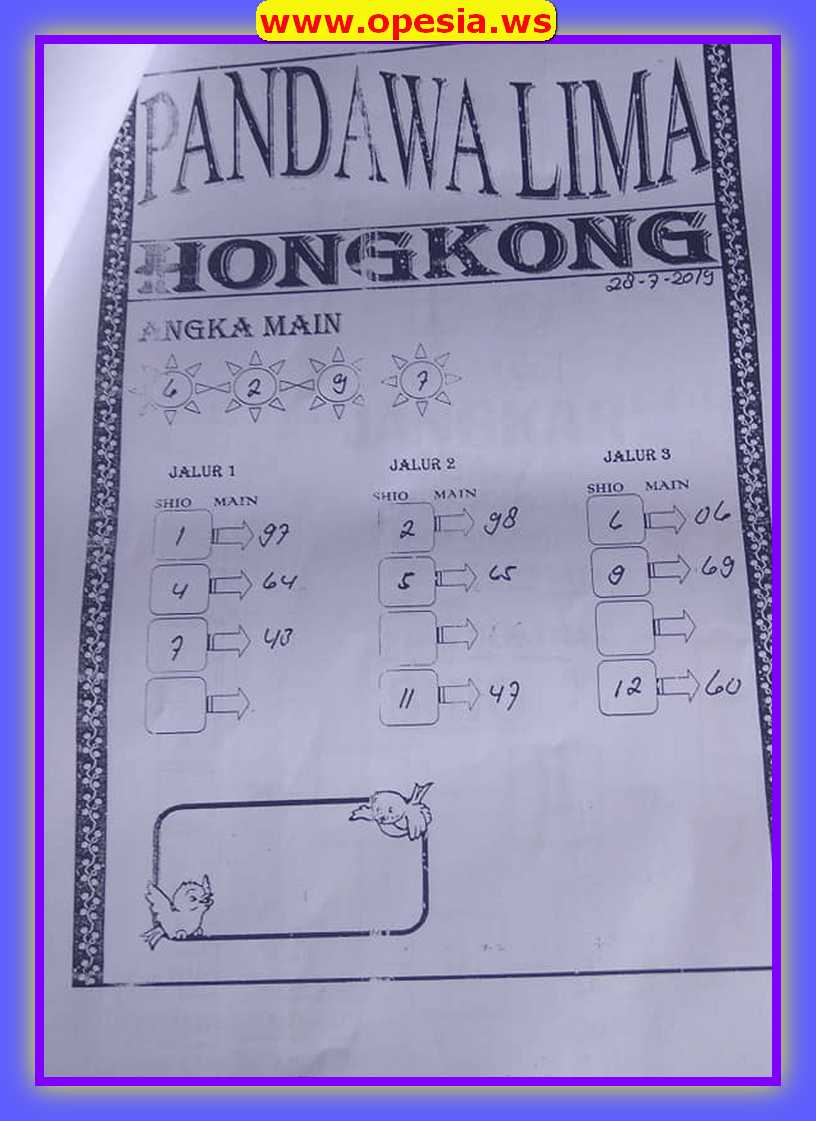 www.opesia.ws
PANDAWA LIMA
HONGKONG
28-7-2019
ANGKA MAIN
6 2 9 7
JALUR 1
SHIO MAIN
1 97
4 64
7 43
JALUR 2
SHIO MAIN
2 98
5 65
11 47
JALUR 3
SHIO MAIN
6 06
9 69
12 60